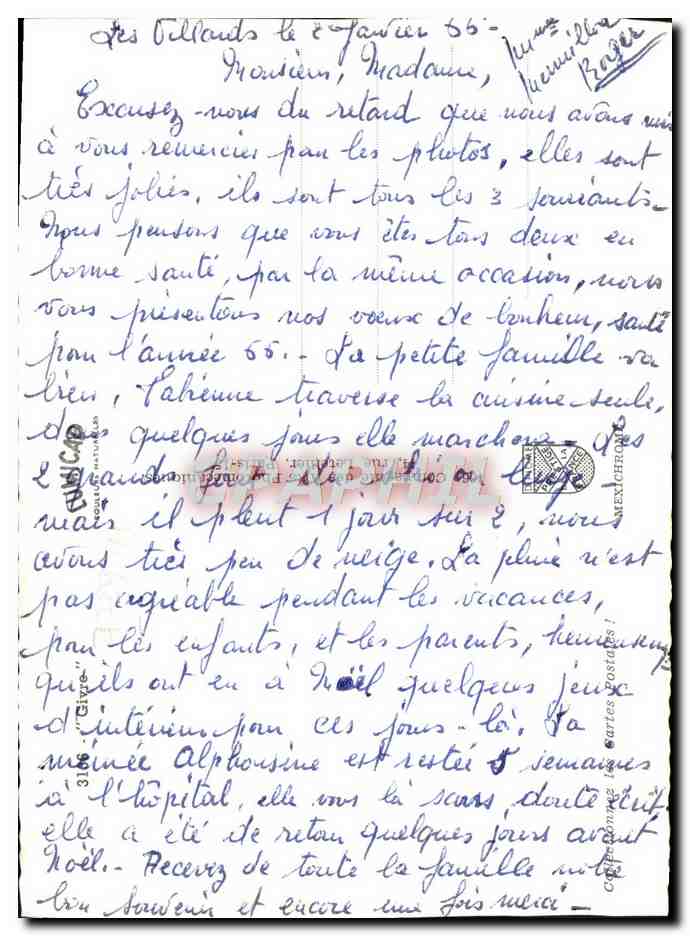 Les Villards le 2 Janvier 66-
Mme
Roger
Monsieur, Madame,
Excusez-nous du retard que nous avons mis
à vous remercier pour les photos, elles sont
très jolies, ils sont tous les 3 souriants-
Nous pensons que vous êtes tous deux en
bonne santé, par la même occasion, nous
vous présentons nos vœux de bonheur, santé
pour l'année 66.- La petite famille va
bien, Fabienne traverse la cuisine seule,
dans quelques jours elle marchera, les
2 grands font de la luge
mais il pleut 1 jour sur 2, nous
avons très peu de neige. La pluie n'est
pas agréable pendant les vacances,
pour les enfants, et les parents, heureusement
qu'ils ont eu à Noël quelques jeux
d'intérieur pour ces jours-là. La
mémée Alphonsine est restée 5 semaines
à l'hôpital, elle vous l'a sans doute écrit,
elle a été de retour quelques jours avant
Noël.- Recevez de toute la famille notre
bon souvenir et encore une fois merci-
COULEURS NATURELLES
3166 "Givre"
MEXICHROME
Collectionnez les Cartes Postales !
CPAPHIL